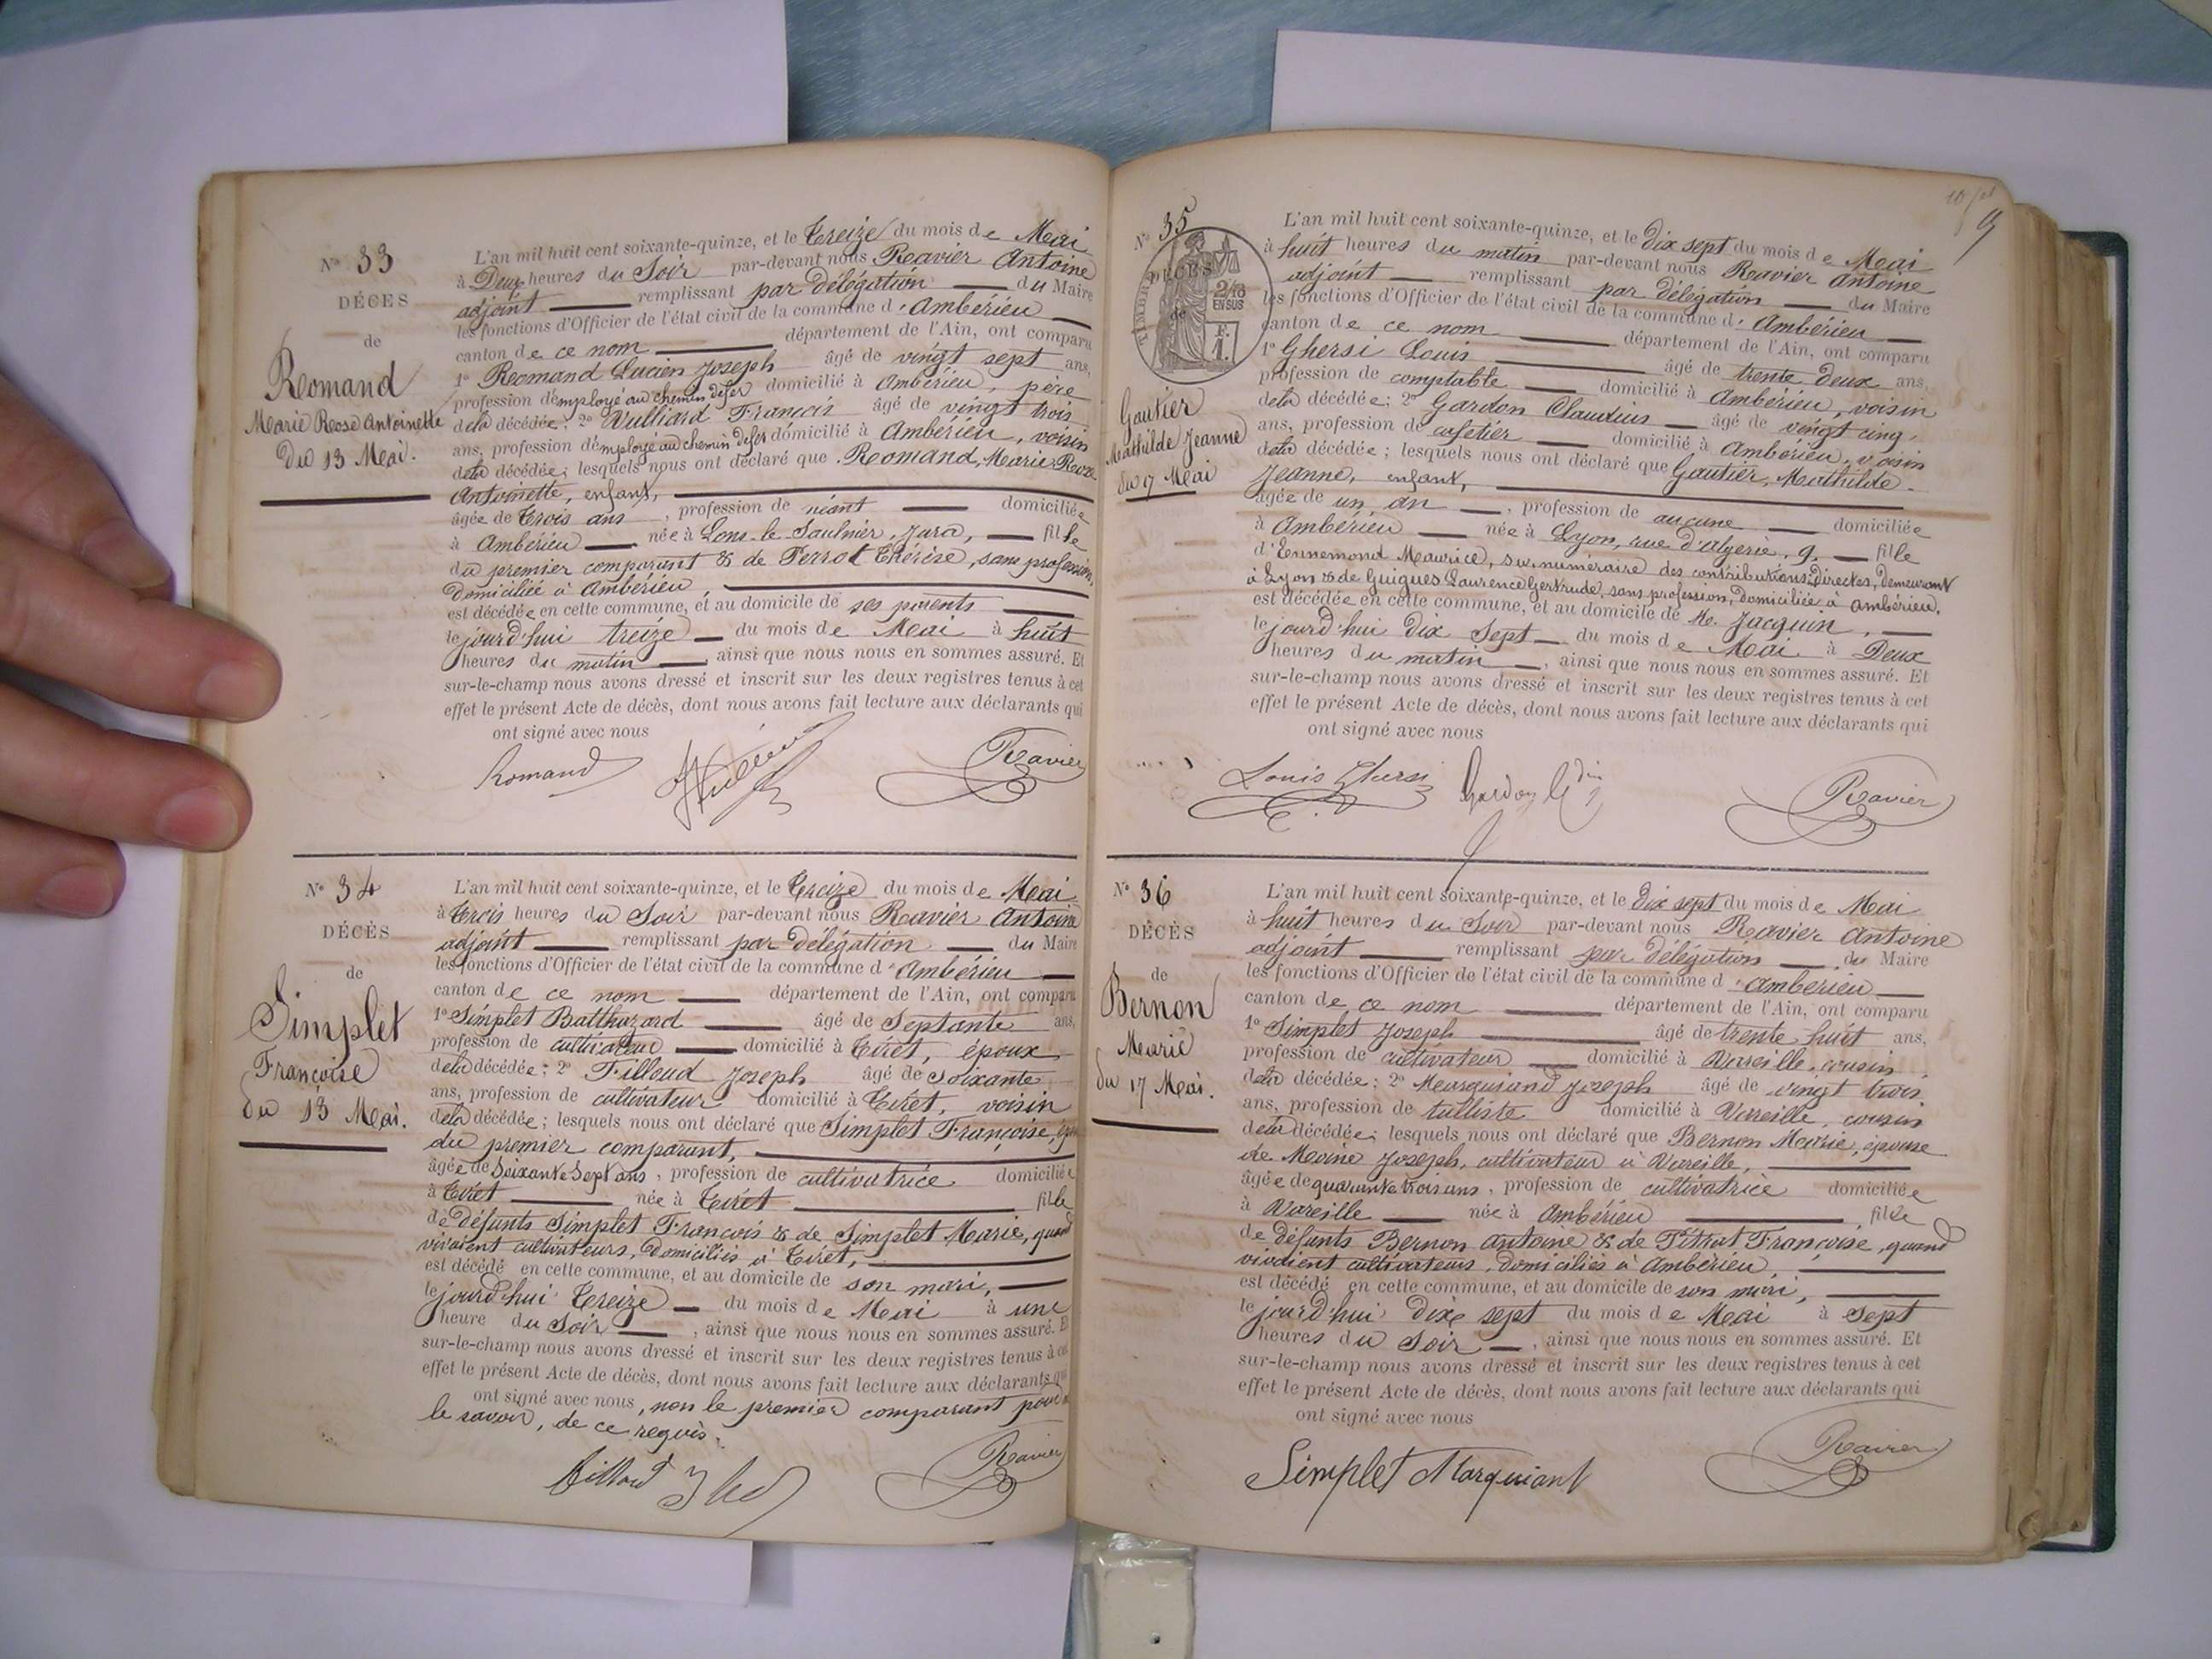 N° 33
DÉCÈS
de
Romand
Marie Rose Antoinette
du 13 Mai.
L'an mil huit cent soixante-quinze, et le Treize du mois de Mai
à Deux heures du Soir par-devant nous Ravier Antoine
adjoint remplissant par délégation du Maire
les fonctions d'Officier de l'état civil de la commune d'Ambérieu
canton de ce nom département de l'Ain, ont comparu
1° Romand Lucien Joseph âgé de vingt sept ans,
profession d'employé au chemin de fer domicilié à Ambérieu, père
de la décédée; 2° Vulliard François âgé de vingt trois
ans, profession d'employé au chemin de fer domicilié à Ambérieu, voisin
de la décédée; lesquels nous ont déclaré que Romand, Marie Rose
Antoinette, enfant,
âgée de Trois ans, profession de néant domiciliée
à Ambérieu née à Lons-le-Saulnier, Jura, fille
du premier comparant & de Perrot Thérèse, sans profession,
domiciliée à Ambérieu,
est décédée en cette commune, et au domicile de ses parents
le jourd'hui treize du mois de Mai à huit
heures du matin, ainsi que nous nous en sommes assuré. Et
sur-le-champ nous avons dressé et inscrit sur les deux registres tenus à cet
effet le présent Acte de décès, dont nous avons fait lecture aux déclarants qui
ont signé avec nous
Romand Ravier
N° 34
DÉCÈS
de
Simplet
Françoise
du 13 Mai.
L'an mil huit cent soixante-quinze, et le Treize du mois de Mai
à Trois heures du Soir par-devant nous Ravier Antoine
adjoint remplissant par délégation du Maire
les fonctions d'Officier de l'état civil de la commune d'Ambérieu
canton de ce nom département de l'Ain, ont comparu
1° Simplet Balthazard âgé de Septante ans,
profession de cultivateur domicilié à Tiret, époux
de la décédée; 2° Filloud Joseph âgé de Soixante
ans, profession de cultivateur domicilié à Tiret, voisin
de la décédée; lesquels nous ont déclaré que Simplet Françoise,
du premier comparant,
âgée de Soixante Sept ans, profession de cultivatrice domiciliée
à Tiret née à Tiret fille
de défunts Simplet François & de Simplet Marie, quand
vivaient cultivateurs, domiciliés à Tiret,
est décédé en cette commune, et au domicile de son mari,
le jourd'hui Treize du mois de Mai à une
heure du Soir, ainsi que nous nous en sommes assuré. Et
sur-le-champ nous avons dressé et inscrit sur les deux registres tenus à cet
effet le présent Acte de décès, dont nous avons fait lecture aux déclarants qui
ont signé avec nous, non le premier comparant pour
le savoir, de ce requis.
Ravier
10
9
N° 35
TIMBRE
DÉCÈS
2/10
EN SUS
F.
1.
de
Gautier
Mathilde Jeanne
du 17 Mai
L'an mil huit cent soixante-quinze, et le Dix sept du mois de Mai
à huit heures du matin par-devant nous Ravier Antoine
adjoint remplissant par délégation du Maire
les fonctions d'Officier de l'état civil de la commune d'Ambérieu
canton de ce nom département de l'Ain, ont comparu
1° Ghersi Louis âgé de trente deux ans,
profession de comptable domicilié à Ambérieu, voisin
de la décédée; 2° Gardon Claudius âgé de vingt cinq
ans, profession de cafetier domicilié à Ambérieu, voisin
de la décédée; lesquels nous ont déclaré que Gautier, Mathilde
Jeanne, enfant,
âgée de un an, profession de aucune domiciliée
à Ambérieu née à Lyon, rue d'Algérie, 9, fille
d'Ennemond Maurice, surnuméraire des contributions Directes, demeurant
à Lyon & de Guigues Laurence Gertrude, sans profession, domiciliée à Ambérieu,
est décédée en cette commune, et au domicile de M. Jacquin,
le jourd'hui Dix Sept du mois de Mai à Deux
heures du matin, ainsi que nous nous en sommes assuré. Et
sur-le-champ nous avons dressé et inscrit sur les deux registres tenus à cet
effet le présent Acte de décès, dont nous avons fait lecture aux déclarants qui
ont signé avec nous
Louis Ghersi Gardon Ravier
N° 36
DÉCÈS
de
Bernon
Marie
du 17 Mai.
L'an mil huit cent soixante-quinze, et le Dix sept du mois de Mai
à huit heures du Soir par-devant nous Ravier Antoine
adjoint remplissant par délégation du Maire
les fonctions d'Officier de l'état civil de la commune d'Ambérieu
canton de ce nom département de l'Ain, ont comparu
1° Simplet Joseph âgé de trente huit ans,
profession de cultivateur domicilié à Vareille, cousin
de la décédée; 2° Marquiand Joseph âgé de vingt trois
ans, profession de tulliste domicilié à Vareille, cousin
de la décédée; lesquels nous ont déclaré que Bernon Marie, épouse
de Moine Joseph, cultivateur à Vareille,
âgée de quarante trois ans, profession de cultivatrice domiciliée
à Vareille née à Ambérieu fille
de défunts Bernon Antoine & de Françoise, quand
vivaient cultivateurs, domiciliés à Ambérieu,
est décédé en cette commune, et au domicile de son mari,
le jourd'hui dix sept du mois de Mai à Sept
heures du Soir, ainsi que nous nous en sommes assuré. Et
sur-le-champ nous avons dressé et inscrit sur les deux registres tenus à cet
effet le présent Acte de décès, dont nous avons fait lecture aux déclarants qui
ont signé avec nous
Simplet Marquiant Ravier